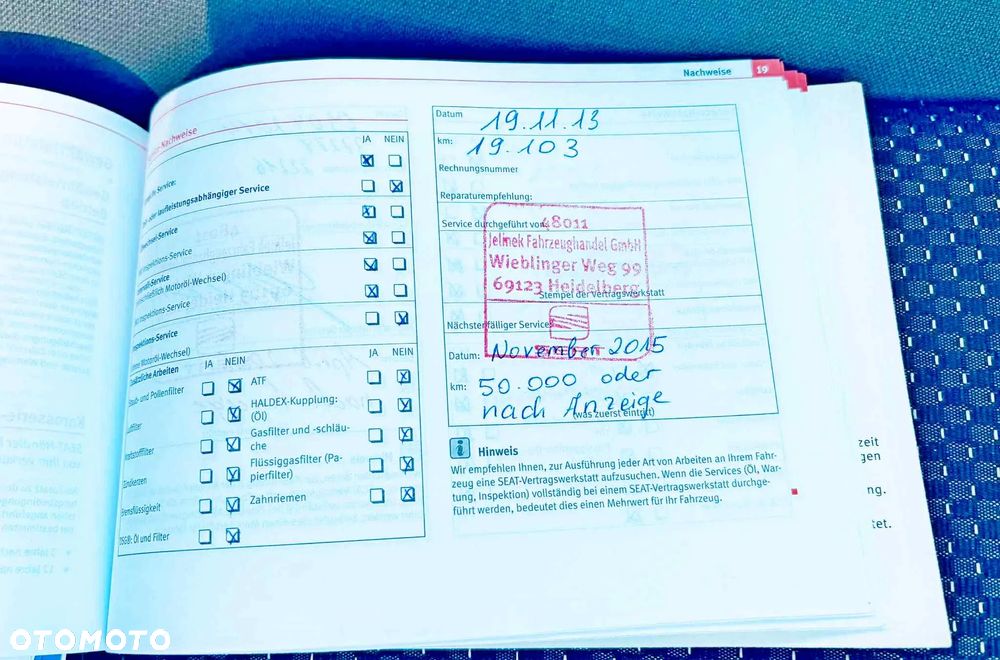 Nachweise 19
-Nachweise
JA NEIN
-Service:
oder laufleistungsabhängiger Service
-Service
Inspektions-Service
-Service
(einschließlich Motoröl-Wechsel)
Inspektions-Service
Inspektions-Service
(ohne Motoröl-Wechsel)
Zusätzliche Arbeiten JA NEIN JA NEIN
Staub- und Pollenfilter
Luftfilter
Kraftstofffilter
Zündkerzen
Bremsflüssigkeit
DSG®: Öl und Filter
ATF
HALDEX-Kupplung:
(Öl)
Gasfilter und -schläu-
che
Flüssiggasfilter (Pa-
pierfilter)
Zahnriemen
Datum 19.11.13
km: 19.103
Rechnungsnummer
Reparaturempfehlung:
Service durchgeführt von:
48011
Jelinek Fahrzeughandel GmbH
Wieblinger Weg 99
69123 Heidelberg
Stempel der Vertragswerkstatt
Nächster fälliger Service:
Datum: November 2015
km: 50.000 oder
nach Anzeige
(was zuerst eintritt)
Hinweis
Wir empfehlen Ihnen, zur Ausführung jeder Art von Arbeiten an Ihrem Fahr-
zeug eine SEAT-Vertragswerkstatt aufzusuchen. Wenn die Services (Öl, War-
tung, Inspektion) vollständig bei einem SEAT-Vertragswerkstatt durchge-
führt werden, bedeutet dies einen Mehrwert für Ihr Fahrzeug.
zeit
gen
ng.
tet.
OTOMOTO